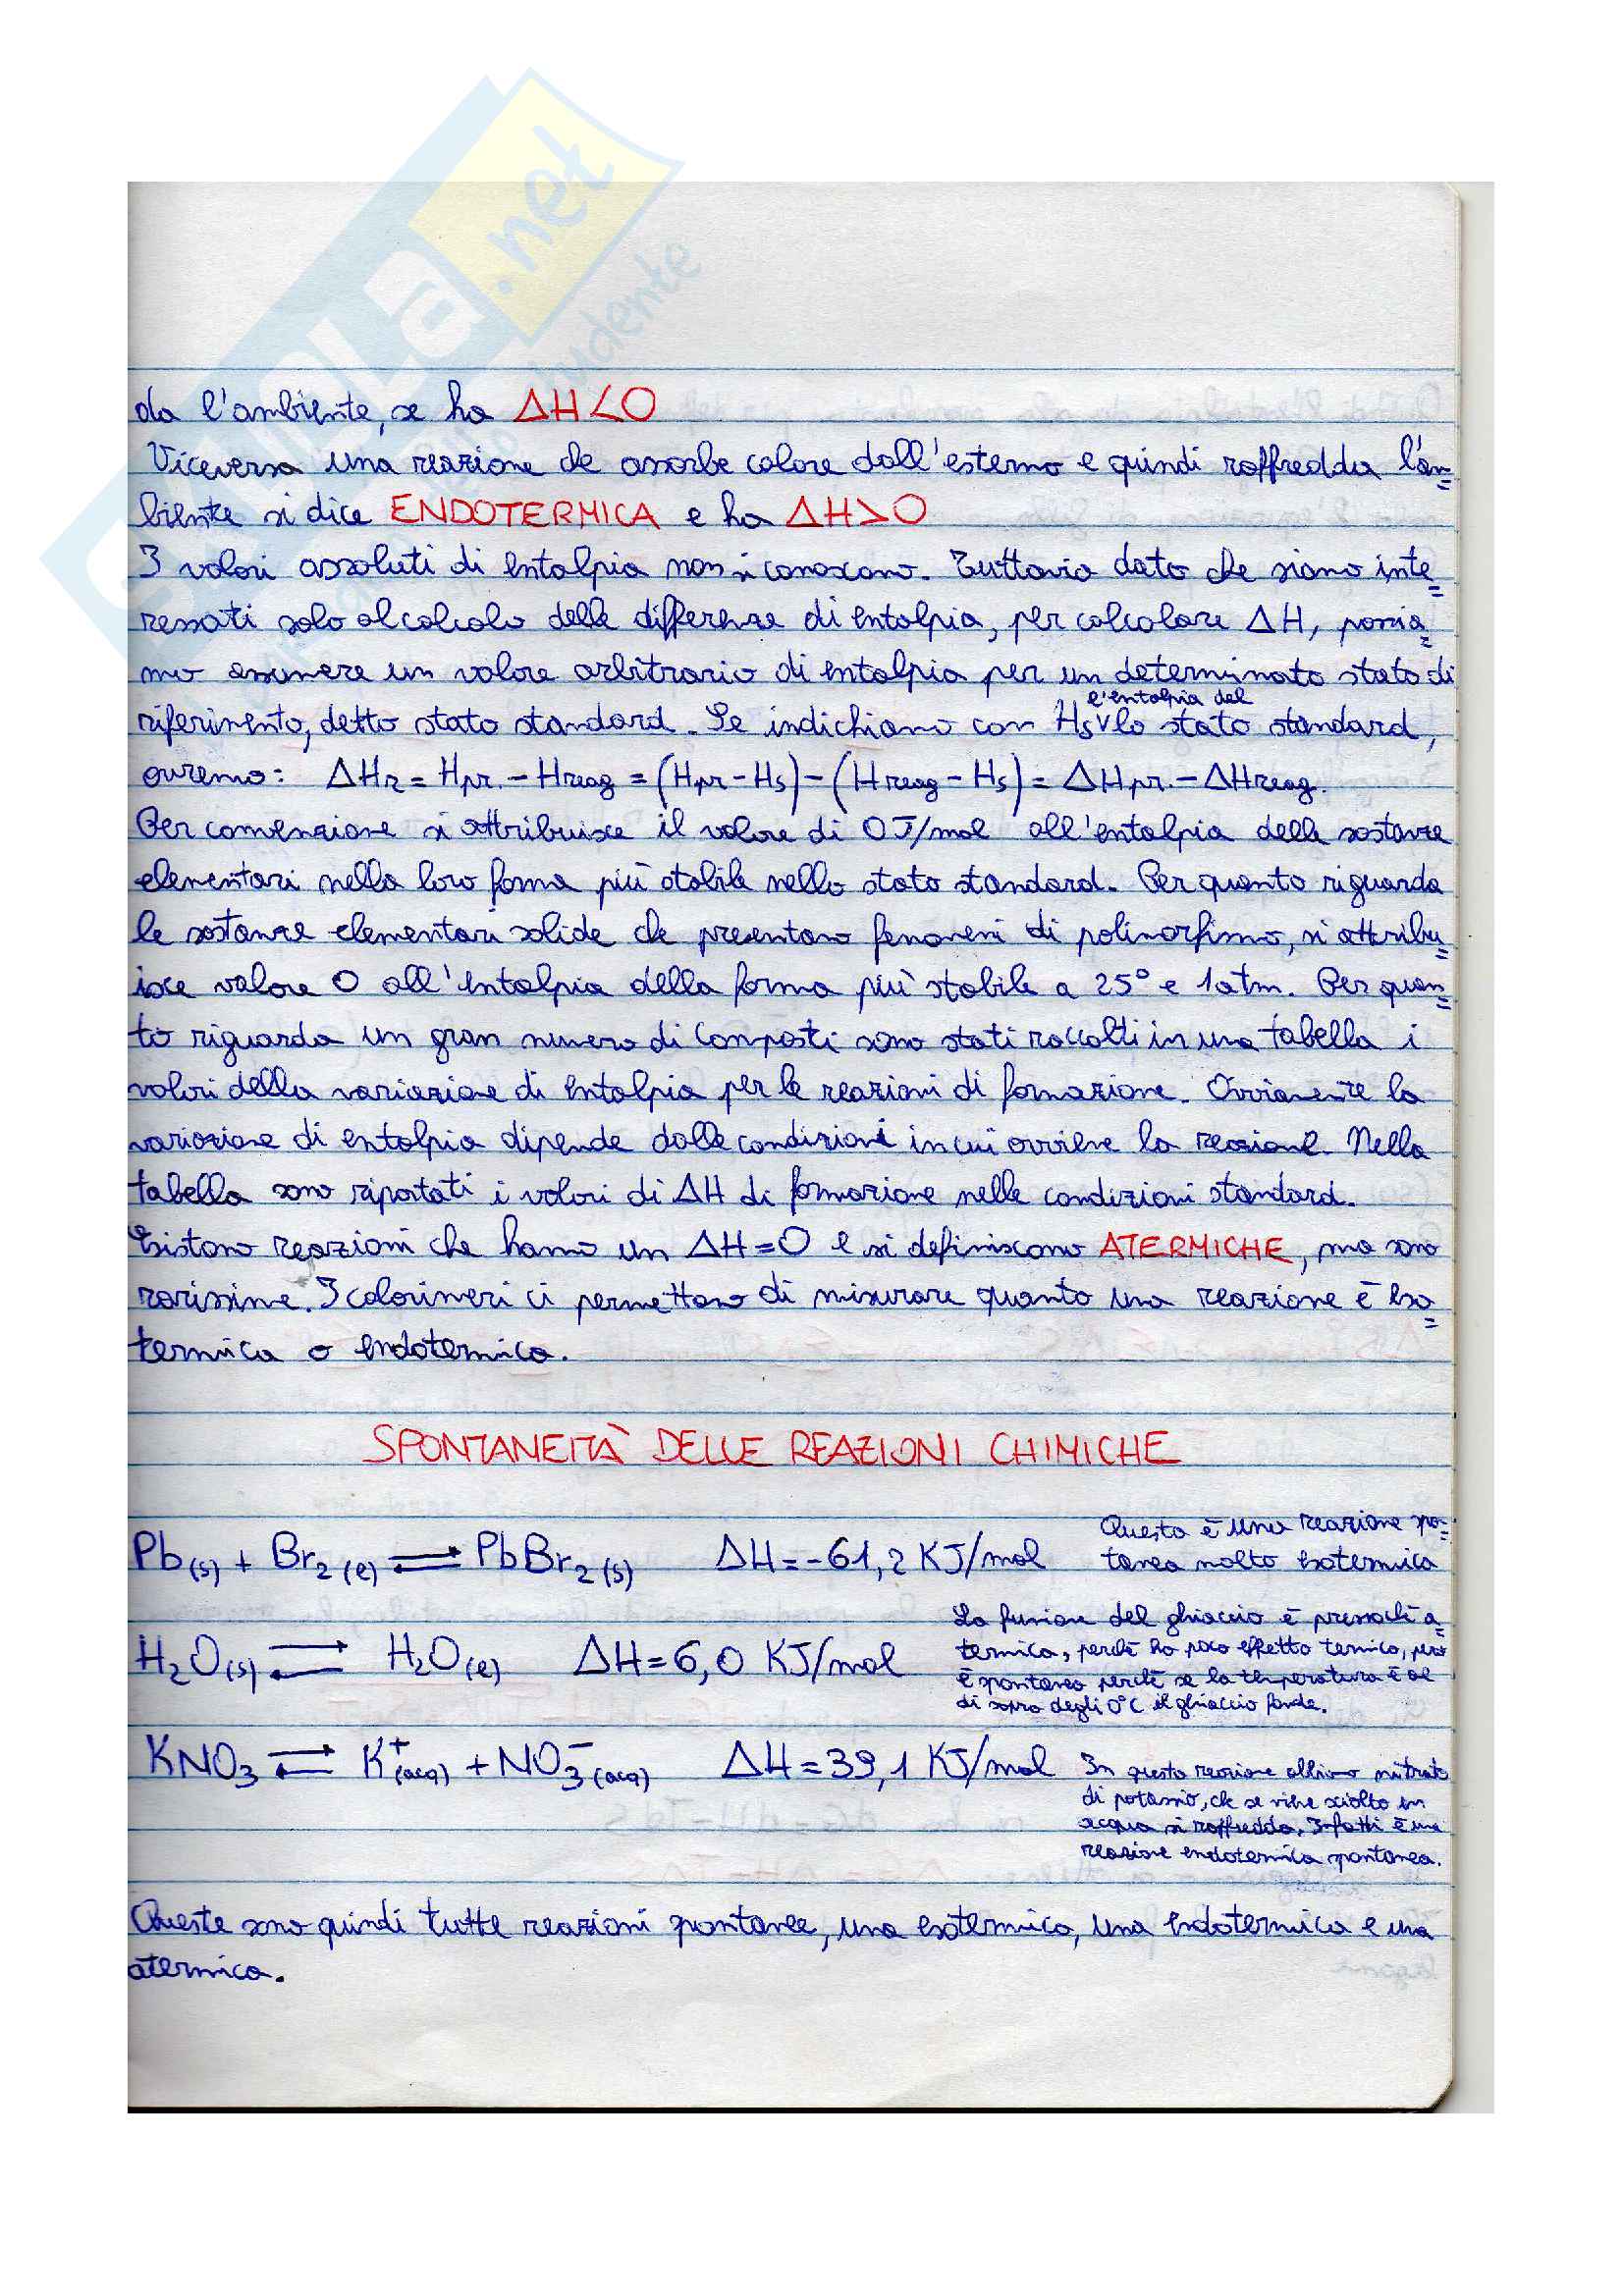 SKUOLa.net
da l'ambiente, se ha ΔH<0
Viceversa una reazione che assorbe calore dall'esterno e quindi raffredda l'am=
biente si dice ENDOTERMICA e ha ΔH>0
I valori assoluti di entalpia non si conoscono. Tuttavia dato che siamo inte=
ressati solo al calcolo delle differenze di entalpia, per calcolare ΔH, possia=
mo assumere un valore arbitrario di entalpia per un determinato stato di
l'entalpia del
riferimento, detto stato standard. Se indichiamo con Hs v lo stato standard,
avremo: ΔHr = Hpr. - Hreag = (Hpr - Hs) - (Hreag - Hs) = ΔHpr. - ΔHreag.
Per convenzione si attribuisce il valore di 0J/mol all'entalpia delle sostanze
elementari nella loro forma più stabile nello stato standard. Per quanto riguarda
le sostanze elementari solide che presentano fenomeni di polimorfismo, si attribu=
isce valore 0 all'entalpia della forma più stabile a 25° e 1 atm. Per quan=
to riguarda un gran numero di composti sono stati raccolti in una tabella i
valori della variazione di entalpia per le reazioni di formazione. Ovviamente la
variazione di entalpia dipende dalle condizioni in cui avviene la reazione. Nella
tabella sono riportati i valori di ΔH di formazione nelle condizioni standard.
Esistono reazioni che hanno un ΔH=0 e si definiscono ATERMICHE, ma sono
rarissime. I calorimeri ci permettono di misurare quanto una reazione è eso=
termica o endotermica.
SPONTANEITÀ DELLE REAZIONI CHIMICHE
Questa è una reazione spo=
Pb(s) + Br2(l) ⇌ PbBr2(s) ΔH=-61,2 KJ/mol tanea molto esotermica
La fusione del ghiaccio è pressochè a=
H2O(s) ⇌ H2O(l) ΔH=6,0 KJ/mol termica, perchè ha poco effetto termico, però
è spontanea perchè se la temperatura è al
di sopra degli 0°C il ghiaccio fonde.
KNO3 ⇌ K+(acq) + NO3-(acq) ΔH=39,1 KJ/mol In questa reazione abbiamo nitrato
di potassio, che se viene sciolto in
acqua si raffredda. Infatti è una
reazione endotermica spontanea.
Queste sono quindi tutte reazioni spontanee, una esotermica, una endotermica e una
atermica.